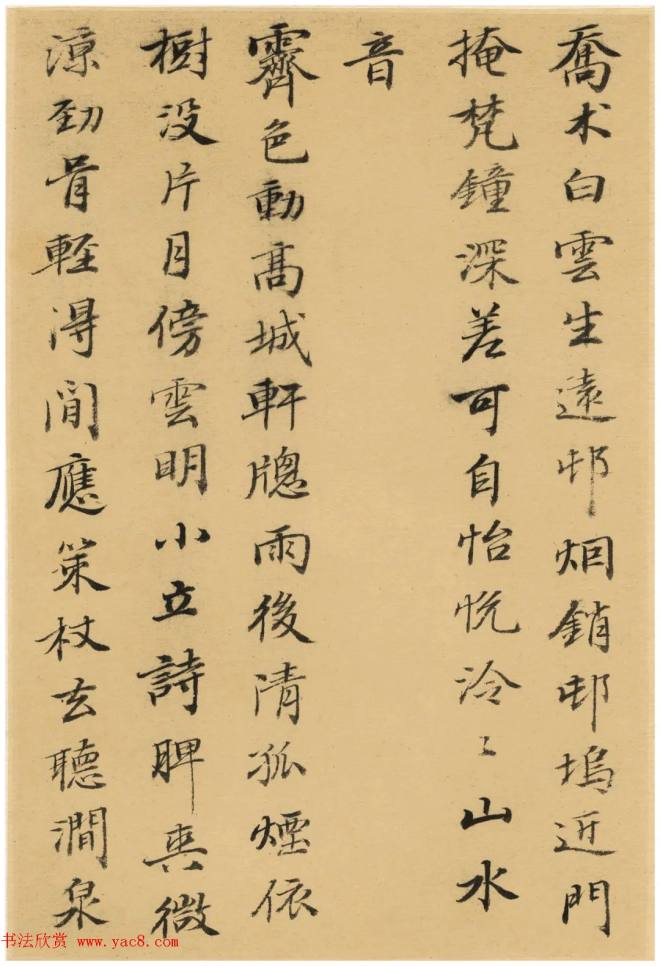 喬木白雲生遠邨烟銷邨塢近門
掩梵鐘深差可自怡悅泠〻山水
音
霽色動髙城軒牕雨後清孤煙依
樹没片月傍雲明小立詩脾爽微
涼勁骨輕淂閒應策杖去聽澗泉
书法欣赏 www.yac8.com